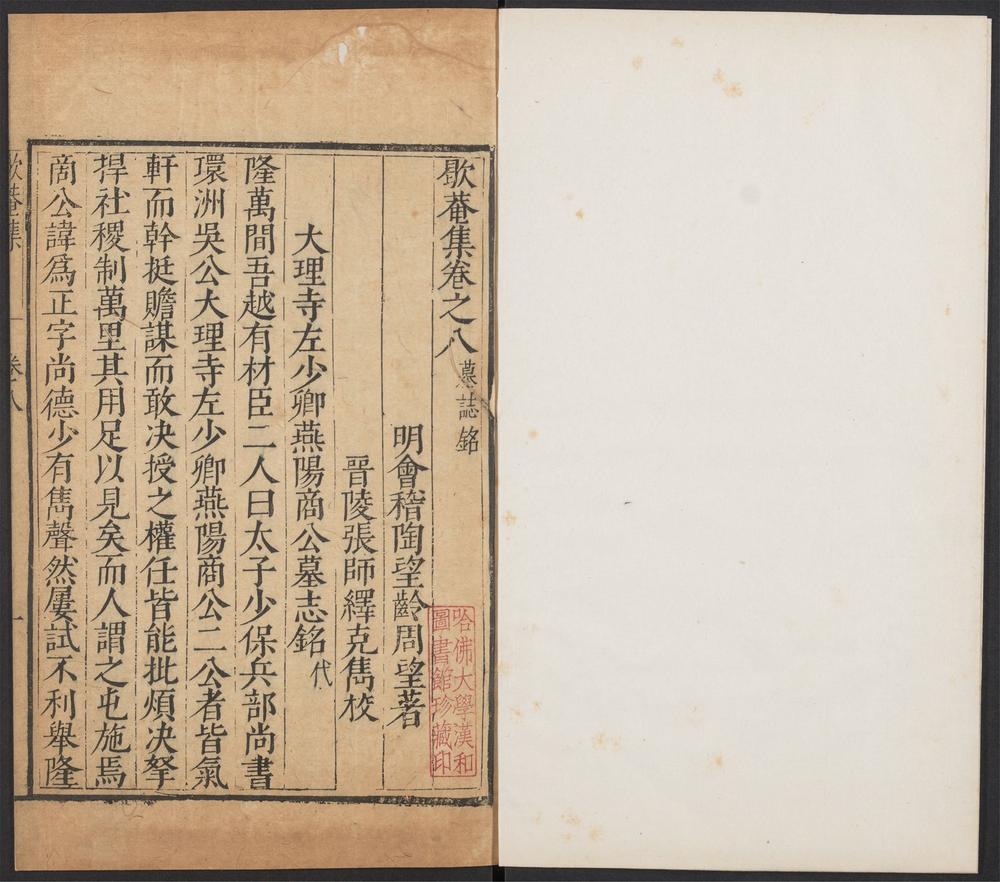 歇菴集卷之八 墓誌銘
明會稽陶望齡周望著
晉陵張師繹克雋校
大理寺左少卿燕陽商公墓志銘 代
隆萬間吾越有材臣二人曰太子少保兵部尚書
環洲吳公大理寺左少卿燕陽商公二公者皆氣
軒而幹挺贍謀而敢決授之權任皆能批煩决拏
捍社稷制萬里其用足以見矣而人謂之屯施焉
商公諱爲正字尚德少有雋聲然屢試不利舉隆
歇菴集 卷八 一
哈佛大學漢和
圖書館珍藏印